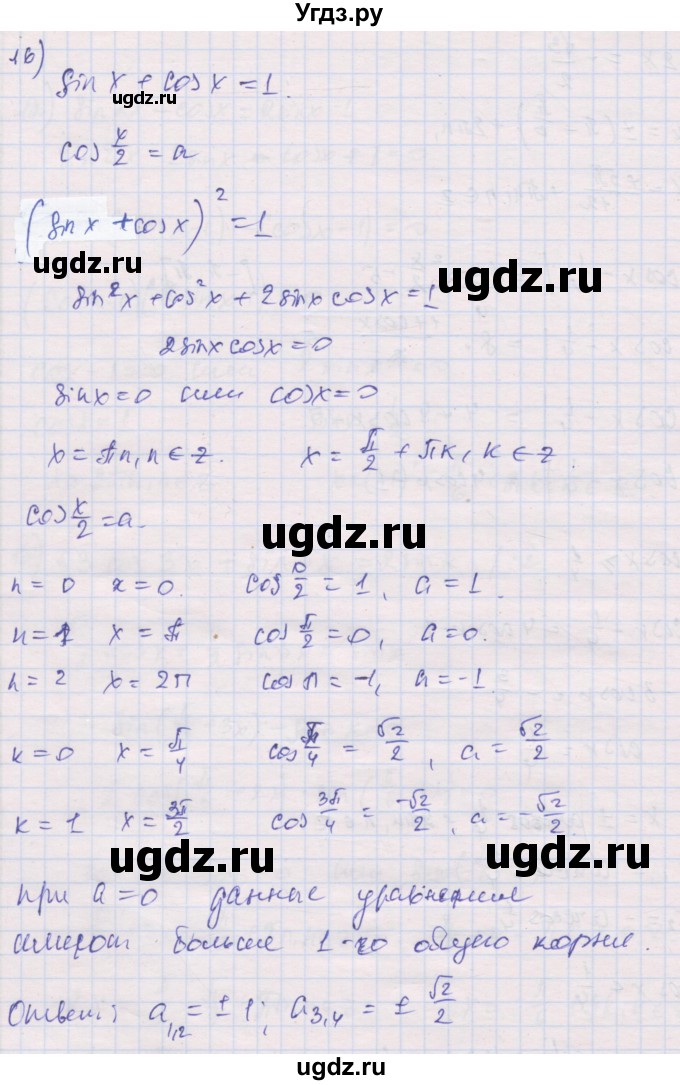 Угдз.ру
1б)
sin x + cos x = 1.
ugdz.ru
cos x/2 = a
(sin x + cos x)² = 1
ugdz.ru ugdz.ru
sin²x + cos²x + 2sin x cos x = 1
2sin x cos x = 0
sin x = 0 или cos x = 0
x = πn, n ∈ z. x = π/2 + πk, k ∈ z.
cos x/2 = a.
ugdz.ru
n = 0 x = 0. cos 0/2 = 1, a = 1.
n = 1 x = π. cos π/2 = 0, a = 0.
n = 2 x = 2π cos π = -1, a = -1.
k = 0 x = π/4 cos π/4 = √2/2, a = √2/2
k = 1 x = 3π/2 cos 3π/4 = -√2/2, a = -√2/2.
ugdz.ru ugdz.ru
при a = 0 данные уравнения
имеют больше 1-го общего корня.
ugdz.ru
Ответ: a1,2 = ± 1; a3,4 = ± √2/2
ugdz.ru ugdz.ru